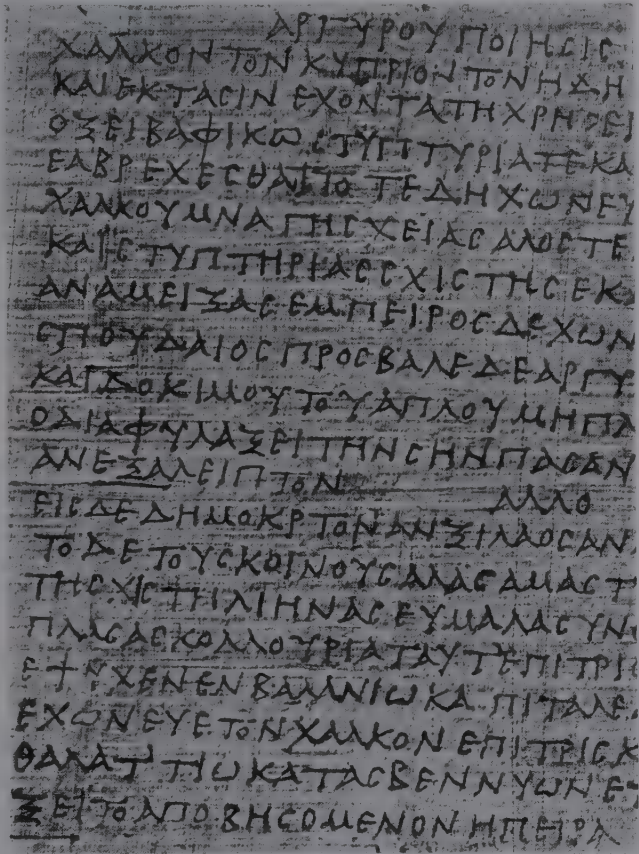 ΑΡΓΥΡΟΥ ΠΟΙΗCΙC
ΧΑΛΚΟΝ ΤΟΝ ΚΥΠΡΙΟΝ ΤΟΝ ΗΔΗ
ΚΑΙ ΕΚΤΑCΙΝ ΕΧΟΝΤΑ ΤΗ ΧΡΗCΕΙ
ΟΞΕΙ ΒΑΦΙΚΩ CΤΥΠΤΥΡΙΑ ΤΕ ΚΑ
ΕΑ ΒΡΕΧΕCΘΑΙ ΤΟΤΕ ΔΗ ΧΩΝΕΥ
ΧΑΛΚΟΥ ΜΝΑ ΓΗC ΧΕΙΑC ΑΛΟC ΤΕ
ΚΑΙ CΤΥΠΤΗΡΙΑC CΧΙCΤΗC ΕΚ
ΑΝΑΜΕΙΞΑC ΕΜΠΕΙΡΟC ΔΕ ΧΩΝ
CΠΟΥΔΑΙΟC ΠΡΟCΒΑΛΕ ΔΕ ΑΡΓΥ
ΚΑΙ ΔΟΚΙΜΟΥ ΤΟΥ ΑΠΛΟΥ ΜΗ ΠΛ
Ο ΔΙΑΦΥΛΑΞΕΙ ΤΗΝ CΗΝ ΠΑCΑΝ
ΑΝΕΞΑΛΕΙΠΤΟΝ
ΑΛΛΟ
ΕΙC ΔΕ ΔΗΜΟΚΡΤΟΝ ΑΝΞΙΛΑΟC ΑΝ
ΤΟΔΕ ΤΟΥC ΚΟΙΝΟΥC ΑΛΑC ΑΜΑ CΤ
ΤΗ CΧΙCΤΗ ΛΙΗΝΑC ΕΥ ΜΑΛΑ CΥΝ
ΠΛΑCΑC ΚΟΛΛΟΥΡΙΑ ΤΑΥΤ ΕΠΙ ΤΡΙ
ΕΨΥΧΕΝ ΕΝ ΒΑΛΑΝΙΩ ΚΑ ΠΙΤΑ ΛΕ
ΕΧΩΝΕΥΕ ΤΟΝ ΧΑΛΚΟΝ ΕΠΙ ΤΡΙC Κ
ΘΑΛΑΤΤΙΩ ΚΑΤΑCΒΕΝΝΥΩΝ
ΞΕΙ ΤΟ ΑΠΟΒΗCΟΜΕΝΟΝ Η ΠΕΙΡΑ